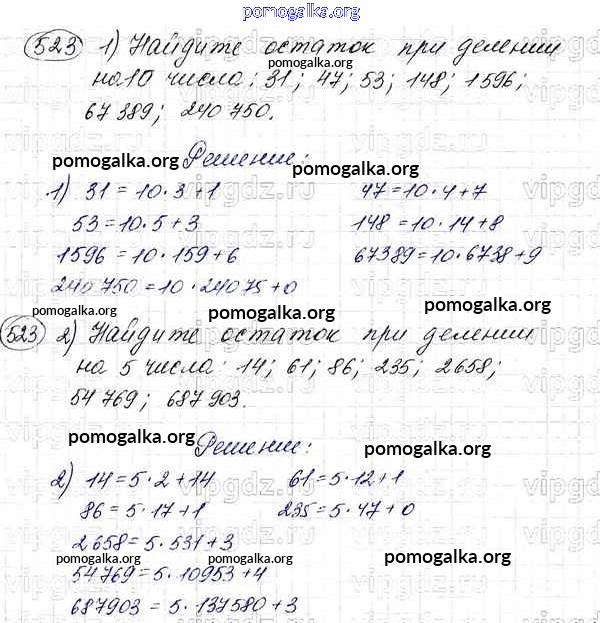 pomogalka.org
523 1) Найдите остаток при делении
на 10 числа: 31; 47; 53; 148; 1596;
67 389; 240 750.
pomogalka.org
Решение:
pomogalka.org pomogalka.org
1) 31 = 10 · 3 + 1 47 = 10 · 4 + 7
53 = 10 · 5 + 3 148 = 10 · 14 + 8
pomogalka.org pomogalka.org
1596 = 10 · 159 + 6 67389 = 10 · 6738 + 9
240 750 = 10 · 24075 + 0
pomogalka.org pomogalka.org
523 2) Найдите остаток при делении
на 5 числа: 14; 61; 86; 235; 2658;
54 769; 687 903.
pomogalka.org
Решение:
pomogalka.org pomogalka.org
2) 14 = 5 · 2 + 14 61 = 5 · 12 + 1
86 = 5 · 17 + 1 235 = 5 · 47 + 0
2658 = 5 · 531 + 3
pomogalka.org pomogalka.org pomogalka.org
54769 = 5 · 10953 + 4
687903 = 5 · 137580 + 3
vipgdz.ru